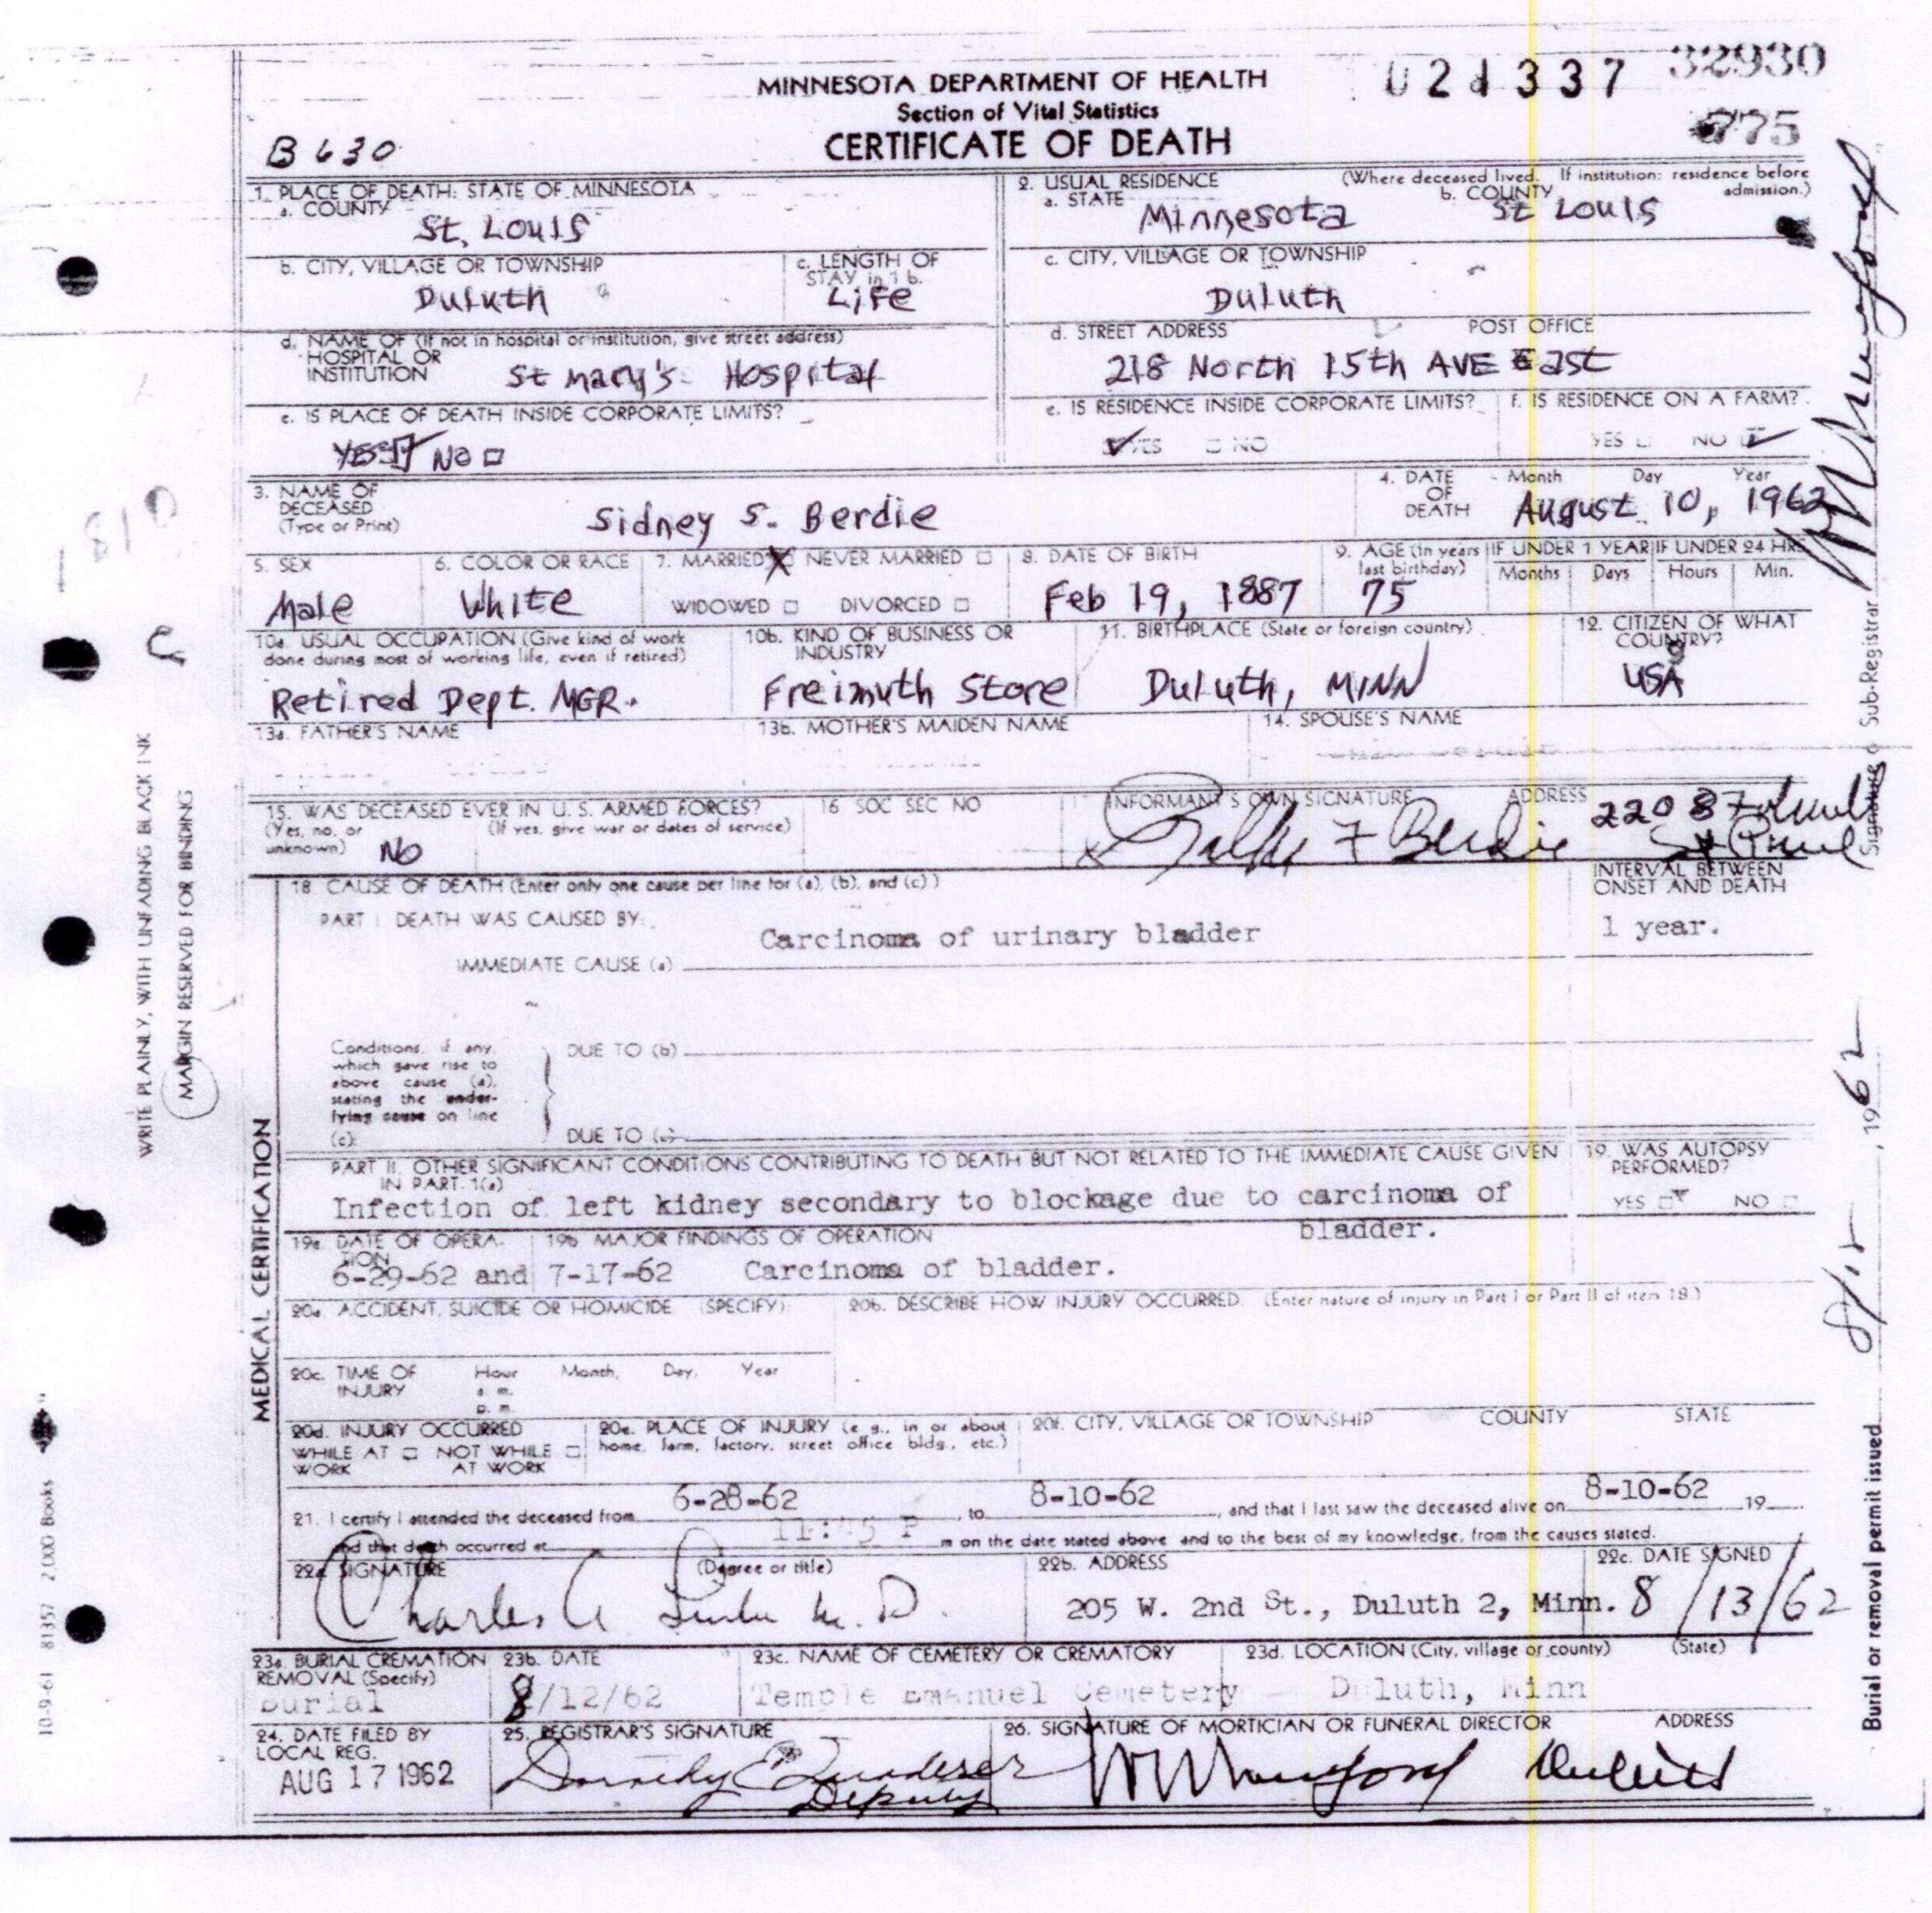 32930
MINNESOTA DEPARTMENT OF HEALTH
Section of Vital Statistics
CERTIFICATE OF DEATH
775
B 630
1. PLACE OF DEATH: STATE OF MINNESOTA
a. COUNTY
St. Louis
2. USUAL RESIDENCE (Where deceased lived. If institution: residence before admission.)
a. STATE Minnesota b. COUNTY St Louis
b. CITY, VILLAGE OR TOWNSHIP
Duluth
c. LENGTH OF STAY in 1b.
Life
c. CITY, VILLAGE OR TOWNSHIP
Duluth
d. NAME OF (If not in hospital or institution, give street address)
HOSPITAL OR
INSTITUTION St Mary's Hospital
d. STREET ADDRESS POST OFFICE
218 North 15th AVE East
e. IS PLACE OF DEATH INSIDE CORPORATE LIMITS?
YES No
e. IS RESIDENCE INSIDE CORPORATE LIMITS?
YES NO
f. IS RESIDENCE ON A FARM?
YES NO
3. NAME OF
DECEASED
(Type or Print)
Sidney S. Berdie
4. DATE
OF
DEATH
Month Day Year
August 10, 1962
5. SEX
Male
6. COLOR OR RACE
White
7. MARRIED NEVER MARRIED
WIDOWED DIVORCED
8. DATE OF BIRTH
Feb 19, 1887
9. AGE (In years
last birthday)
75
IF UNDER 1 YEAR
Months Days
IF UNDER 24 HRS
Hours Min.
10a. USUAL OCCUPATION (Give kind of work
done during most of working life, even if retired)
Retired Dept. MGR.
10b. KIND OF BUSINESS OR
INDUSTRY
Freimuth Store
11. BIRTHPLACE (State or foreign country)
Duluth, MINN
12. CITIZEN OF WHAT
COUNTRY?
USA
13a. FATHER'S NAME
13b. MOTHER'S MAIDEN NAME
14. SPOUSE'S NAME
15. WAS DECEASED EVER IN U. S. ARMED FORCES?
(Yes, no, or unknown) (If yes, give war or dates of service)
No
16 SOC SEC NO
INFORMANT'S OWN SIGNATURE ADDRESS
F Berdie 2208
St Paul
18. CAUSE OF DEATH (Enter only one cause per line for (a), (b), and (c))
INTERVAL BETWEEN
ONSET AND DEATH
PART I DEATH WAS CAUSED BY:
IMMEDIATE CAUSE (a) Carcinoma of urinary bladder
1 year.
Conditions, if any,
which gave rise to
above cause (a),
stating the under-
lying cause on line
(c):
DUE TO (b)
DUE TO (c)
PART II. OTHER SIGNIFICANT CONDITIONS CONTRIBUTING TO DEATH BUT NOT RELATED TO THE IMMEDIATE CAUSE GIVEN
IN PART 1(a)
Infection of left kidney secondary to blockage due to carcinoma of
bladder.
19. WAS AUTOPSY
PERFORMED?
YES NO
19a. DATE OF OPERA-
TION
19b MAJOR FINDINGS OF OPERATION
6-29-62 and 7-17-62 Carcinoma of bladder.
20a. ACCIDENT, SUICIDE OR HOMICIDE (SPECIFY):
20b. DESCRIBE HOW INJURY OCCURRED. (Enter nature of injury in Part I or Part II of item 18.)
20c. TIME OF
INJURY
Hour Month, Day, Year
a. m.
p. m.
20d. INJURY OCCURRED
WHILE AT NOT WHILE
WORK AT WORK
20e. PLACE OF INJURY (e. g., in or about
home, farm, factory, street office bldg., etc.)
20f. CITY, VILLAGE OR TOWNSHIP COUNTY STATE
21. I certify I attended the deceased from 6-28-62, to 8-10-62, and that I last saw the deceased alive on 8-10-62 19
and that death occurred at P m on the date stated above and to the best of my knowledge, from the causes stated.
22a. SIGNATURE (Degree or title)
Charles M. D.
22b. ADDRESS
205 W. 2nd St., Duluth 2, Minn.
22c. DATE SIGNED
8/13/62
23a. BURIAL CREMATION
REMOVAL (Specify)
Burial
23b. DATE
8/12/62
23c. NAME OF CEMETERY OR CREMATORY
Temple Emanuel Cemetery
23d. LOCATION (City, village or county) (State)
Duluth, Minn
24. DATE FILED BY
LOCAL REG.
AUG 17 1962
25. REGISTRAR'S SIGNATURE
Dorothy E
Deputy
26. SIGNATURE OF MORTICIAN OR FUNERAL DIRECTOR ADDRESS
Duluth
WRITE PLAINLY, WITH UNFADING BLACK INK
MARGIN RESERVED FOR BINDING
MEDICAL CERTIFICATION
10-9-61 81357 2,000 Books
Burial or removal permit issued , 1962
Sub-Registrar